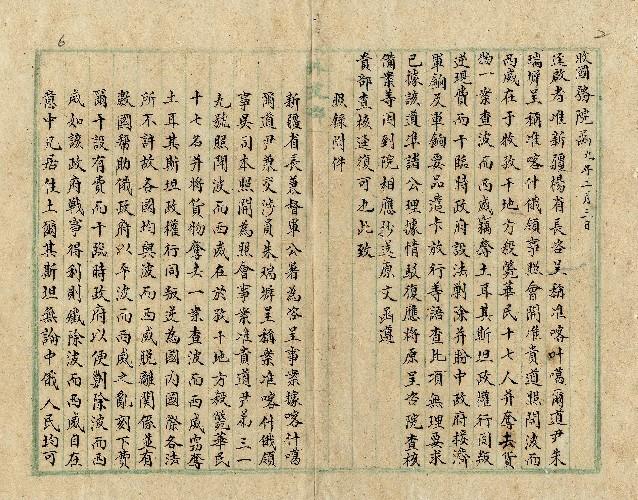 2
收國務院函 九年二月三日
逕啟者准新疆楊省長咨呈稱准喀什噶爾道尹朱
瑞墀呈稱准喀什俄領事照會開准貴道照開波而
西威在于敖干地方殺斃華民十七人并奪去貨
物一案查波而西威竊奪土耳其斯坦政權行同叛
逆現費而干臨時政府設法剿除并盼中政府接濟
軍餉及軍餉要品邊卡放行等語查此項無理要求
已據該道準諸公理據情駁復應將原呈咨院查核
備案等因到院相應抄送原文函達
貴部查核逕復可也此致
照錄附件
6
新疆省長兼督軍公署為咨呈事案據喀什噶
爾道尹兼交涉員朱瑞墀呈稱案准喀什俄領
事吳司本照開為照會事案准貴道尹第三一
九號照開波而西威在於敖干地方殺斃華民
十七名并將貨物奪去一案查波而西威竊奪
土耳其斯坦政權行同叛逆為國內國際各法
所不許故各國均與波而西威脫離關係並有
數國幫助俄政府以平波而西威之亂刻下費
爾干設有費而干臨時政府以便剿除波而西
威如該政府戰事得利則殲除波而西威自在
意中凡居住土爾其斯坦無論中俄人民均可